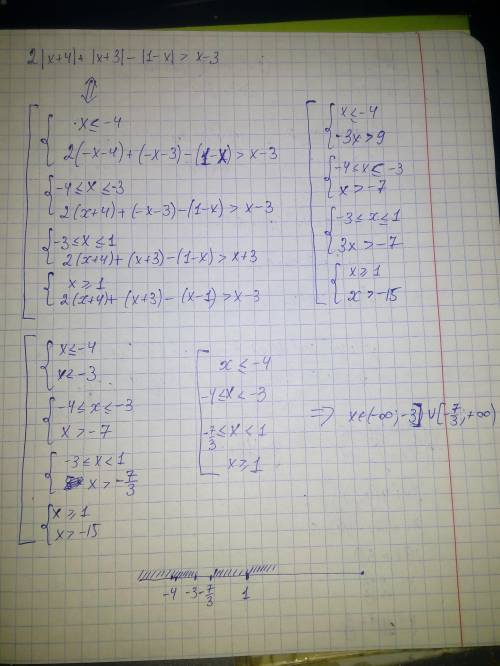 2|x+4|+|x+3|-|1-x|>x-3
⇕
x≤-4
2(-x-4)+(-x-3)-(1-x)>x-3
-4≤x≤-3
2(x+4)+(-x-3)-(1-x)>x-3
-3≤x≤1
2(x+4)+(x+3)-(1-x)>x+3
x≥1
2(x+4)+(x+3)-(x-1)>x-3
x≤-4
-3x>9
-4≤x≤-3
x>-7
-3≤x≤1
3x>-7
x≥1
x>-15
x≤-4
x<-3
-4≤x≤-3
x>-7
-3≤x<1
x>-7/3
x≥1
x>-15
x≤-4
-4≤x<-3
-7/3≤x<1
x≥1
⇒ x∈(-∞;-3]∪[-7/3;+∞)
-4 -3 -7/3 1